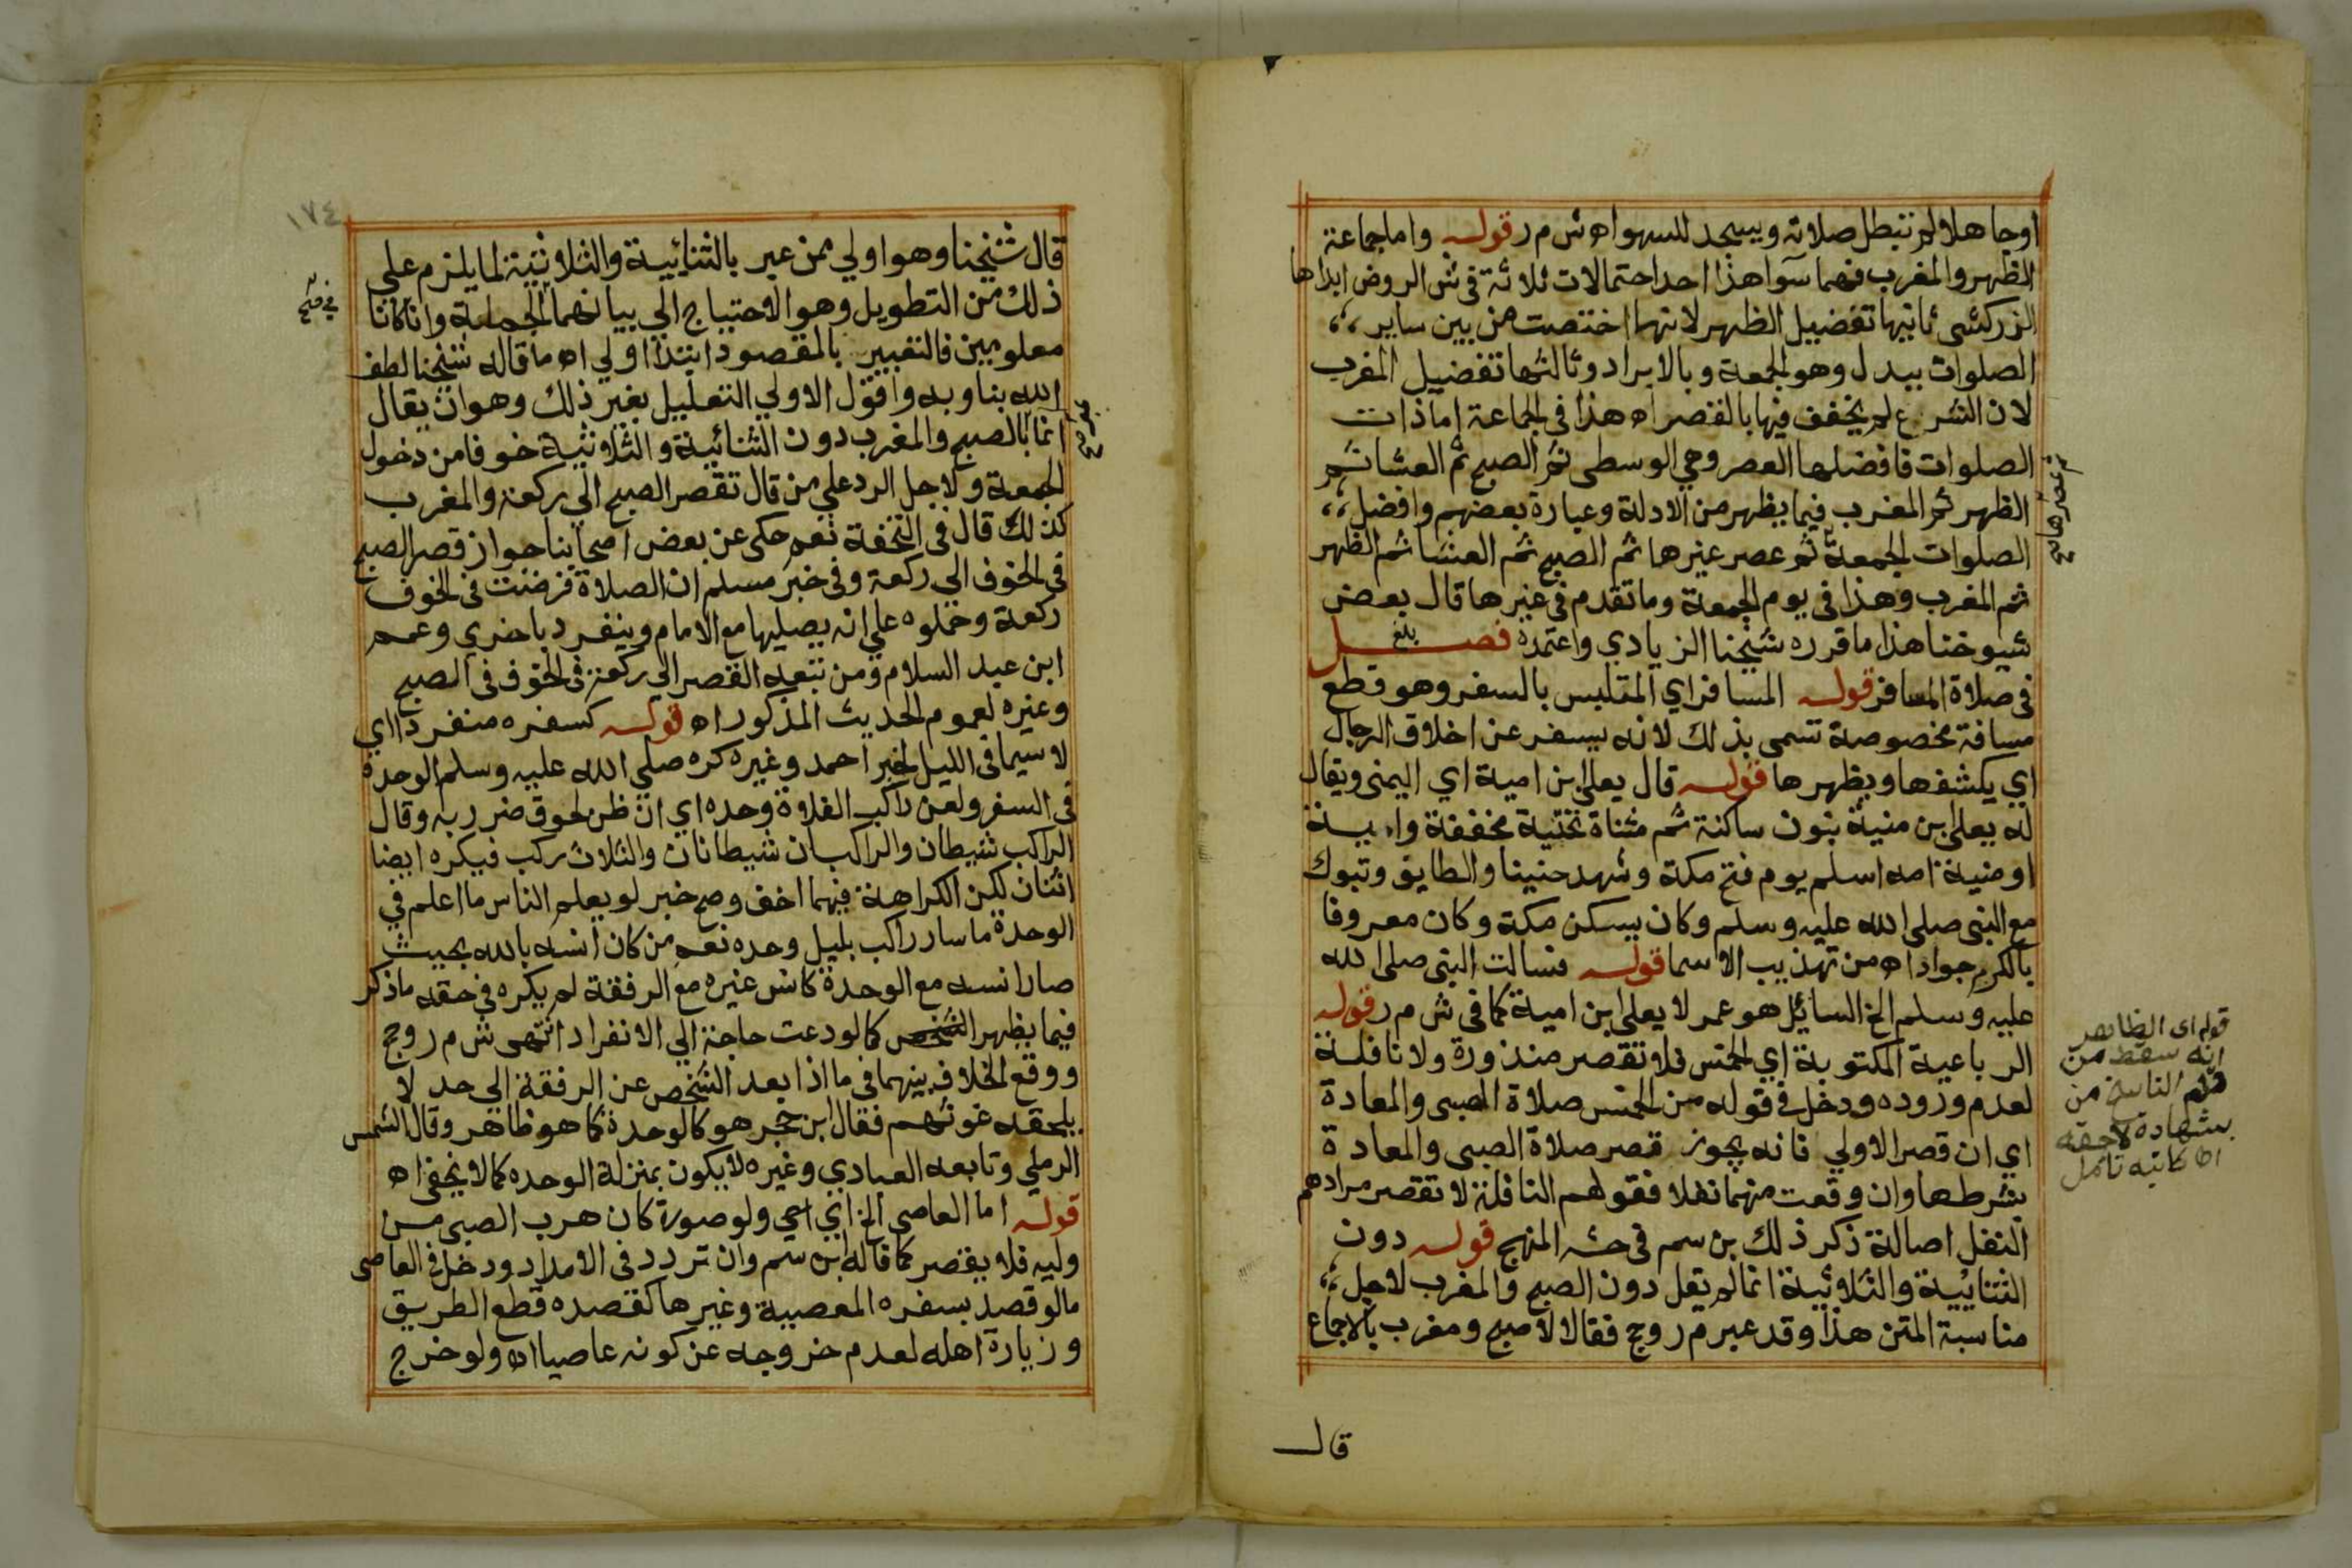 اوجاهلا لم تبطل صلاته ويسجد للسهو اه ش م ر قوله واما جماعة
الظهر والمغرب فهما سوا هذا احد احتمالات ثلاثة في ش الروض ابداها
الزركشي ثانيها تفضيل الظهر لانها اختصت من بين ساير
الصلوات ببدل وهو الجمعة وبالابراد وثالثها تفضيل المغرب
لان الشرع لم يخفف فيها بالقصر اه هذا في الجماعة اما ذات
الصلوات فافضلها العصر وهي الوسطى ثم الصبح ثم العشا ثم
الظهر ثم المغرب فيما يظهر من الادلة وعبارة بعضهم وافضل
الصلوات الجمعة ثم عصر غيرها ثم الصبح ثم العشا ثم الظهر
ثم عصرها صح
ثم المغرب وهذا في يوم الجمعة وما تقدم في غيرها قال بعض
شيوخنا هذا ما قرره شيخنا الزيادي واعتمده بلغ فصل
في صلاة المسافر قوله المسافر اي المتلبس بالسفر وهو قطع
مسافة مخصوصة تسمى بذلك لانه يسفر عن اخلاق الرجال
اي يكشفها ويظهرها قوله قال يعلى ابن امية اي اليمنى ويقال
له يعلى ابن منية بنون ساكنة ثم مثناة تحتية مخففة وا
او منية امه اسلم يوم فتح مكة وشهد حنينا والطايف وتبوك
مع النبي صلى الله عليه وسلم وكان يسكن مكة وكان معروفا
بالكرم جوادا اه من تهذيب الاسما قوله فسالت النبي صلى الله
عليه وسلم الخ السائل هو عمر لا يعلى ابن امية كما في ش م ر قوله
الرباعية المكتوبة اي الخمس فلا تقصر منذورة ولا نافلة
لعدم وروده ودخل في قوله من الخمس صلاة الصبي والمعادة
اي ان قصر الاولي فانه يجوز قصر صلاة الصبي والمعادة
قوله اى الظاهر
انه سقط من
قلم الناسخ من
بشهادة لاحقه
اه كاتبه تامل
بشرطها وان وقعت منهما نفلا فقولهم النافلة لا تقصر مرادهم
النفل اصالة ذكر ذلك بن سم في حشـ المنهج قوله دون
الثنائية والثلاثية انما لم تقل دون الصبح والمغرب لاجل
مناسبة المتن هذا وقد عبر م ر وحج فقالا لا صبح ومغرب بالاجماع
قال
١٧٤
قال شيخنا وهو اولي ممن عبر بالثنائية والثلاثية لما يلزم على
ذلك من التطويل وهو الاحتياج الي بيانهما وان كانا
معلومين فالتعبير بالمقصود ابتدا اولي اه ما قاله شيخنا لطف
الله بنا وبه واقول الاولي التعليل بغير ذلك وهو ان يقال
انما بالصبح والمغرب دون الثنائية والثلاثية خوفا من دخول
عبر صح
الجمعة ولاجل الرد علي من قال تقصر الصبح الي ركعة والمغرب
كذلك قال في التحفة نعم حكي عن بعض اصحابنا جواز قصر الصبح
في الخوف الي ركعة وفي خبر مسلم ان الصلاة فرضت في الخوف
ركعة وحملوه علي انه يصليها مع الامام وينفرد باخري وعمم
ابن عبد السلام ومن تبعه القصر الي ركعة في الخوف في الصبح
وغيره لعموم الحديث المذكور اه قوله كسفره منفردا اي
لا سيما في الليل لخبر احمد وغيره كره صلى الله عليه وسلم الوحدة
في السفر ولعن راكب الفلاة وحده اي ان ظن لحوق ضرر به وقال
الراكب شيطان والراكبان شيطانان والثلاث ركب فيكره ايضا
اثنان لكن الكراهة فيهما اخف وصح خبر لو يعلم الناس ما اعلم في
الوحدة ما سار راكب بليل وحده نعم من كان انسه بالله بحيث
صار انسه مع الوحدة كانس غيره مع الرفقة لم يكره في حقه ما ذكر
فيما يظهر كما لو دعت حاجة الي الانفراد انتهى ش م ر وحج
ووقع الخلاف بينهما في ما اذا بعد الشخص عن الرفقة الي حد لا
يلحقه غوثهم فقال ابن حجر هو كالوحدة كما هو ظاهر وقال الشمس
الرملي وتابعه العبادي وغيره لا يكون بمنزلة الوحده كما لا يخفي اه
قوله اما العاصي الخ اي ولو صورة كان هرب الصبي من
وليه فلا يقصر كما قاله ابن سم وان تردد في الامداد ودخل في العاصي
ما لو قصد بسفره المعصية وغيرها كقصده قطع الطريق
وزيارة اهله لعدم خروجه عن كونه عاصيا اه ولو خرج